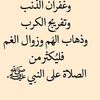 وغفران الذنب
وتفريج الكرب
وذهاب الهم وزوال الغم
فليُكثر من
الصلاة على النبي ﷺ